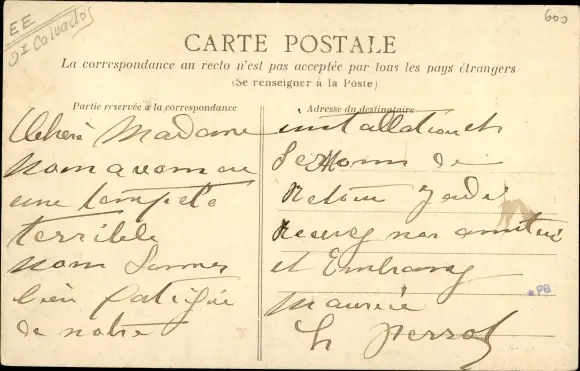 EE
JI Calvados
600
CARTE POSTALE
La correspondance au recto n'est pas acceptée par tous les pays étrangers
(Se renseigner à la Poste)
Partie réservée à la correspondance
Chère Madame
nous avons eu
une tempete
terrible
nous sommes
bien fatigué
de notre
Adresse du destinataire
installation et
Serons de
Retour Jeudi
Recevez nos amitié
et Embrassez
Maurice
h Perrot
*PB